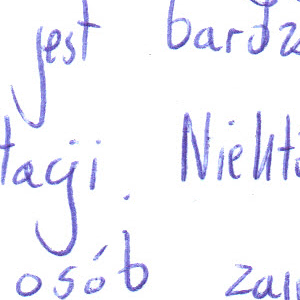 jest bardz
tacji. Niektó
osób zaw